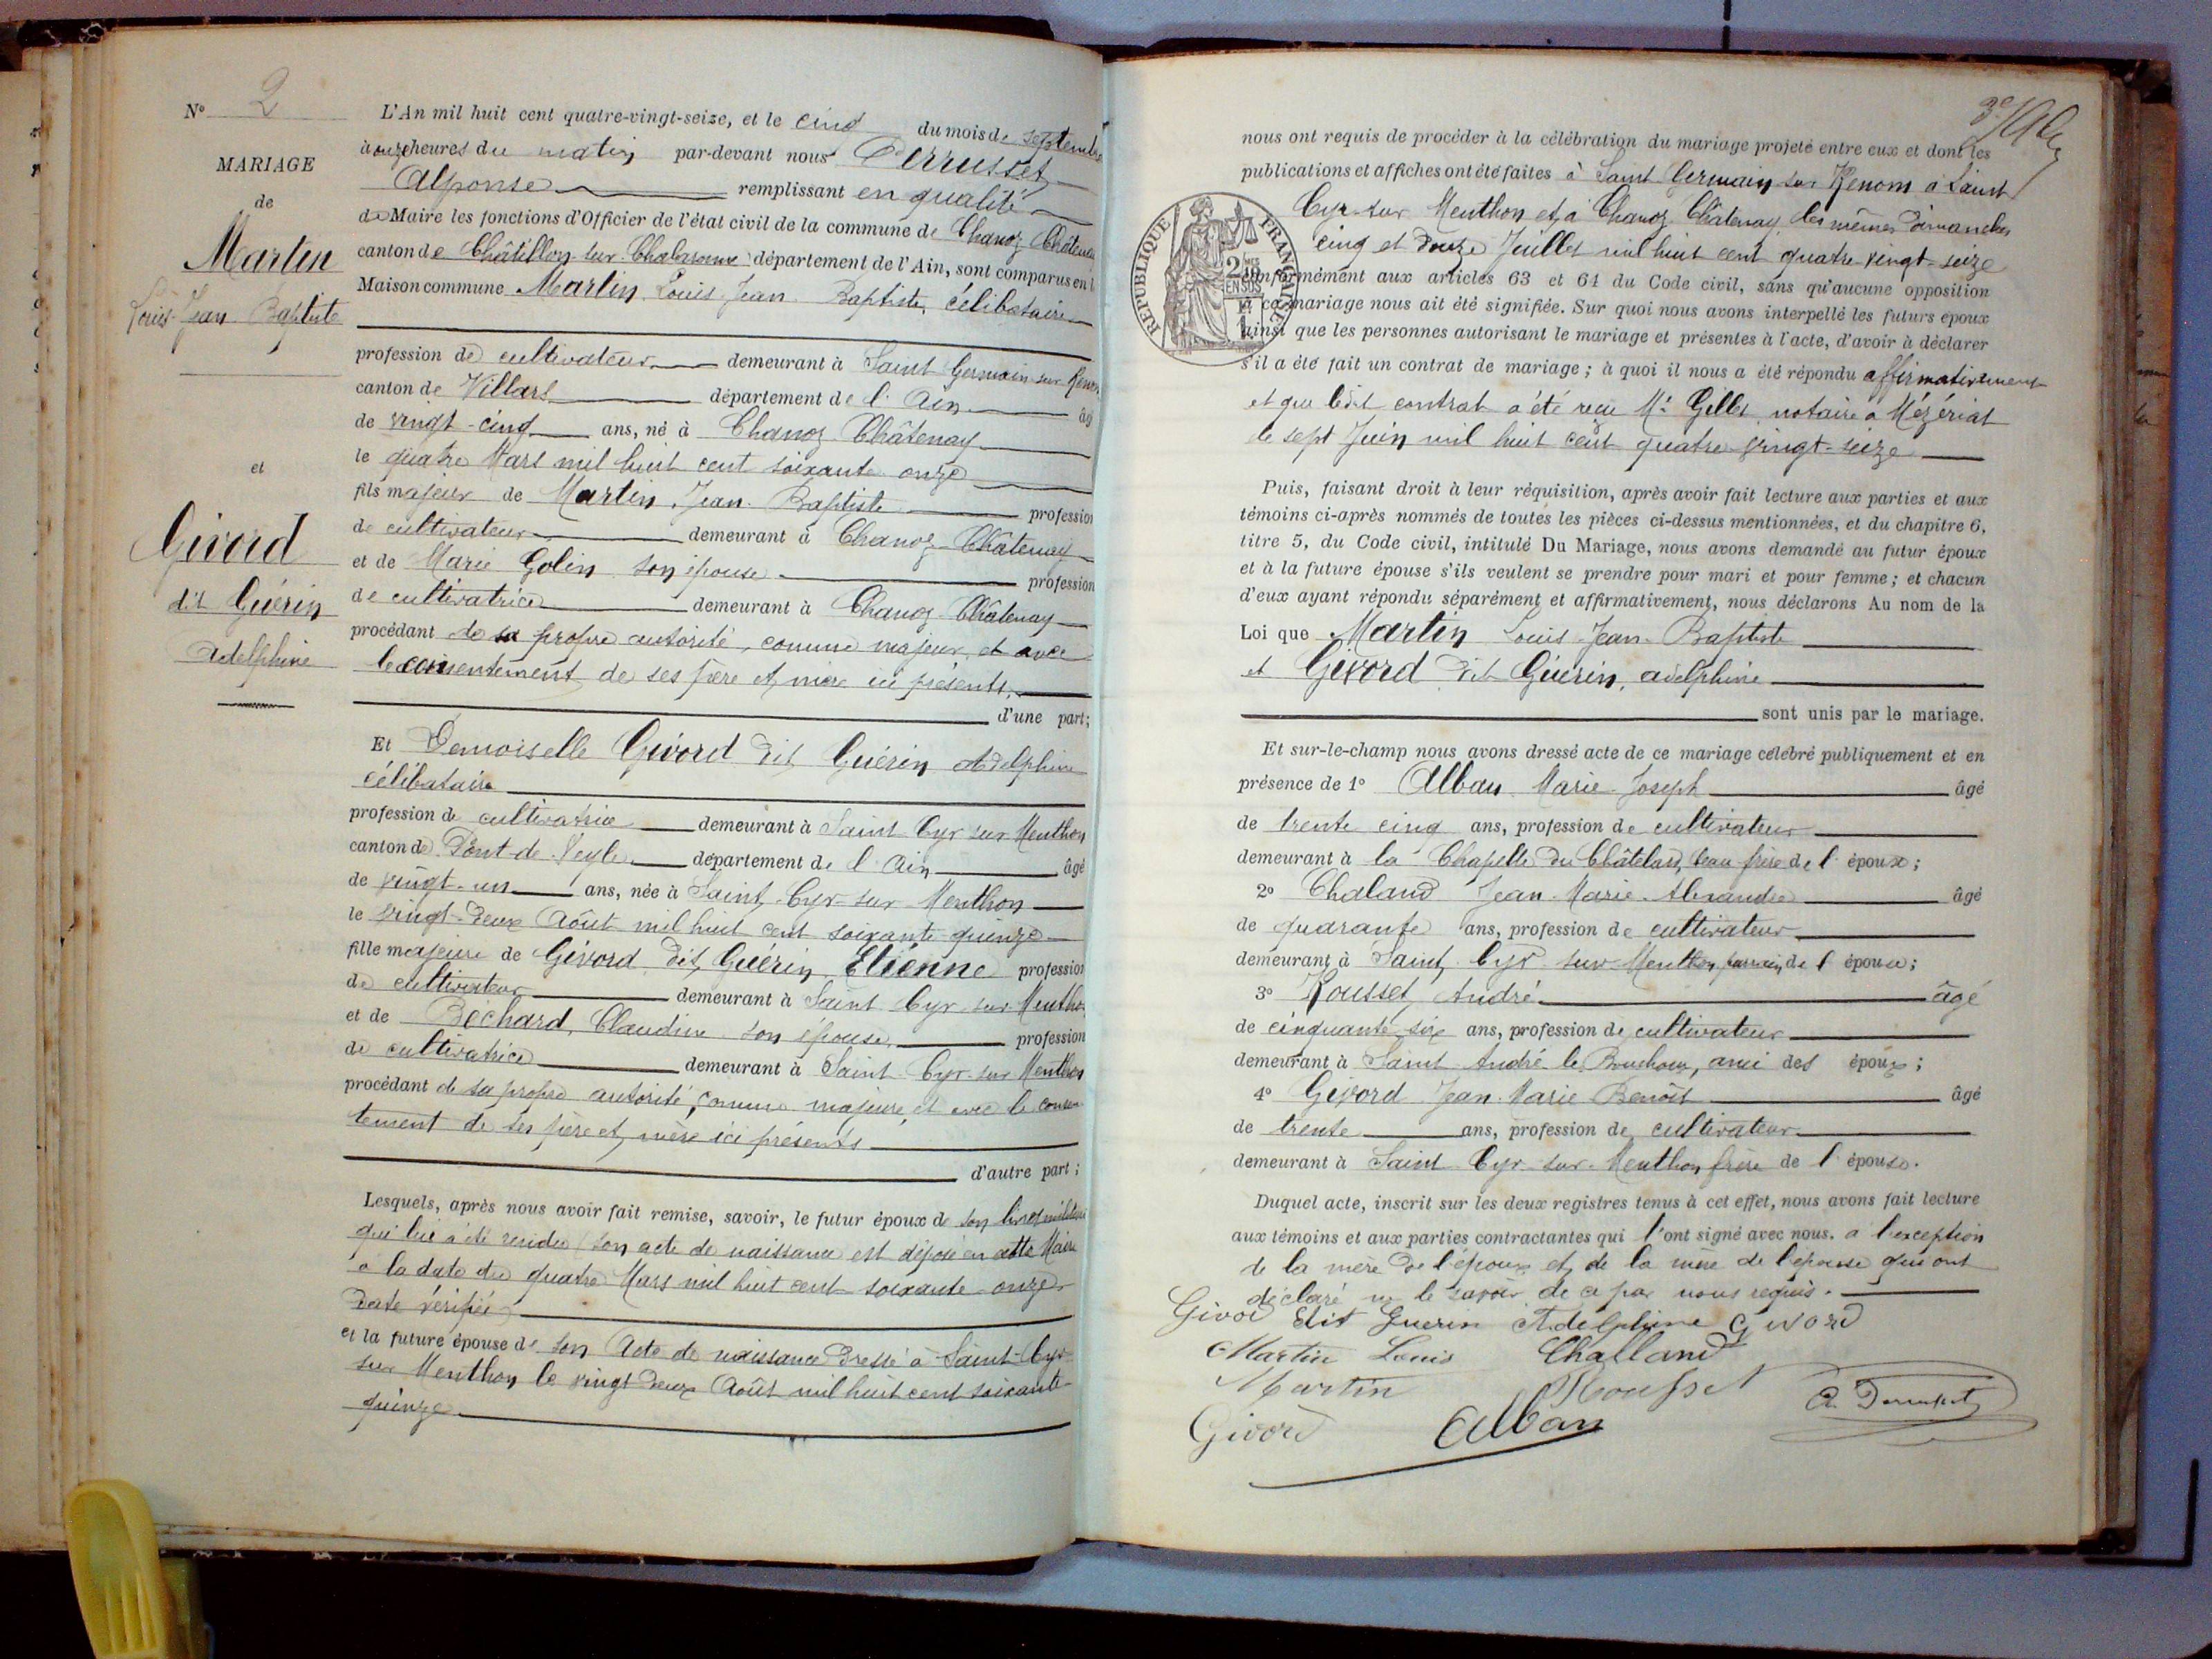 N° 2
MARIAGE
de
Martin
Louis Jean Baptiste
et
Givord
dit Guérin
Adelphine
L'An mil huit cent quatre-vingt-seize, et le cinq du mois de septembre
à onze heures du matin par-devant nous Perrusset
Alphonse remplissant en qualité
de Maire les fonctions d'Officier de l'état civil de la commune de Chanoz Châtenay
canton de Châtillon-sur-Chalaronne département de l'Ain, sont comparus en la
Maison commune Martin Louis Jean Baptiste, célibataire
profession de cultivateur demeurant à Saint Germain sur Renon
canton de Villars département de l'Ain âgé
de vingt-cinq ans, né à Chanoz Châtenay
le quatre Mars mil huit cent soixante onze
fils majeur de Martin, Jean-Baptiste profession
de cultivateur demeurant à Chanoz Châtenay
et de Marie Golin son épouse profession
de cultivatrice demeurant à Chanoz Châtenay
procédant de sa propre autorité, comme majeur et avec
le consentement de ses père et mère ici présents,
d'une part;
Et Demoiselle Givord dit Guérin Adelphine
célibataire
profession de cultivatrice demeurant à Saint Cyr sur Menthon
canton de Pont-de-Veyle département de l'Ain âgé
de vingt-un ans, née à Saint Cyr-sur-Menthon
le vingt-deux Août mil huit cent soixante quinze
fille majeure de Givord dit Guérin Etienne profession
de cultivateur demeurant à Saint Cyr sur Menthon
et de Béchard, Claudine son épouse profession
de cultivatrice demeurant à Saint Cyr-sur-Menthon
procédant de sa propre autorité, comme majeure et avec le consen
tement de ses père et mère ici présents
d'autre part;
Lesquels, après nous avoir fait remise, savoir, le futur époux de son livret militaire
qui lui a été rendu, son acte de naissance est déposé en cette Mairie
à la date du quatre Mars mil huit cent soixante-onze
Date vérifiée
et la future épouse de son Acte de naissance dressé à Saint-Cyr
sur Menthon le vingt-deux Août mil huit cent soixante
quinze
nous ont requis de procéder à la célébration du mariage projeté entre eux et dont les
publications et affiches ont été faites à Saint Germain sur Renom à Saint
Cyr-sur Menthon et à Chanoz Châtenay les mêmes dimanches
cinq et douze Juillet mil huit cent quatre-vingt-seize
RÉPUBLIQUE FRANÇAISE
conformément aux articles 63 et 64 du Code civil, sans qu'aucune opposition
à ce mariage nous ait été signifiée. Sur quoi nous avons interpellé les futurs époux
ainsi que les personnes autorisant le mariage et présentes à l'acte, d'avoir à déclarer
s'il a été fait un contrat de mariage; à quoi il nous a été répondu affirmativement
et que ledit contrat a été reçu Me Gillet notaire à Mézériat
le sept Juin mil huit cent quatre-vingt-seize
Puis, faisant droit à leur réquisition, après avoir fait lecture aux parties et aux
témoins ci-après nommés de toutes les pièces ci-dessus mentionnées, et du chapitre 6,
titre 5, du Code civil, intitulé Du Mariage, nous avons demandé au futur époux
et à la future épouse s'ils veulent se prendre pour mari et pour femme; et chacun
d'eux ayant répondu séparément et affirmativement, nous déclarons Au nom de la
Loi que Martin Louis-Jean-Baptiste
et Givord dit Guérin, adelphine
sont unis par le mariage.
Et sur-le-champ nous avons dressé acte de ce mariage célébré publiquement et en
présence de 1° Alban Marie Joseph âgé
de trente cinq ans, profession de cultivateur
demeurant à la Chapelle du Châtelard, beau frère de l'époux;
2° Chaland Jean-Marie-Alexandre âgé
de quarante ans, profession de cultivateur
demeurant à Saint Cyr sur Menthon parrain de l'épouse;
3° Rousset André âgé
de cinquante six ans, profession de cultivateur
demeurant à Saint André le Bouchoux, ami des époux;
4° Givord Jean-Marie Benoît âgé
de trente ans, profession de cultivateur
demeurant à Saint Cyr-sur-Menthon frère de l'épouse.
Duquel acte, inscrit sur les deux registres tenus à cet effet, nous avons fait lecture
aux témoins et aux parties contractantes qui l'ont signé avec nous. à l'exception
de la mère de l'époux et de la mère de l'épouse qui ont
déclaré ne le savoir de ce par nous requis.
Givor dit Guerin Adelphine Givord
Martin Louis Challand
Martin Rousset A. Perrusset
Givord Alban